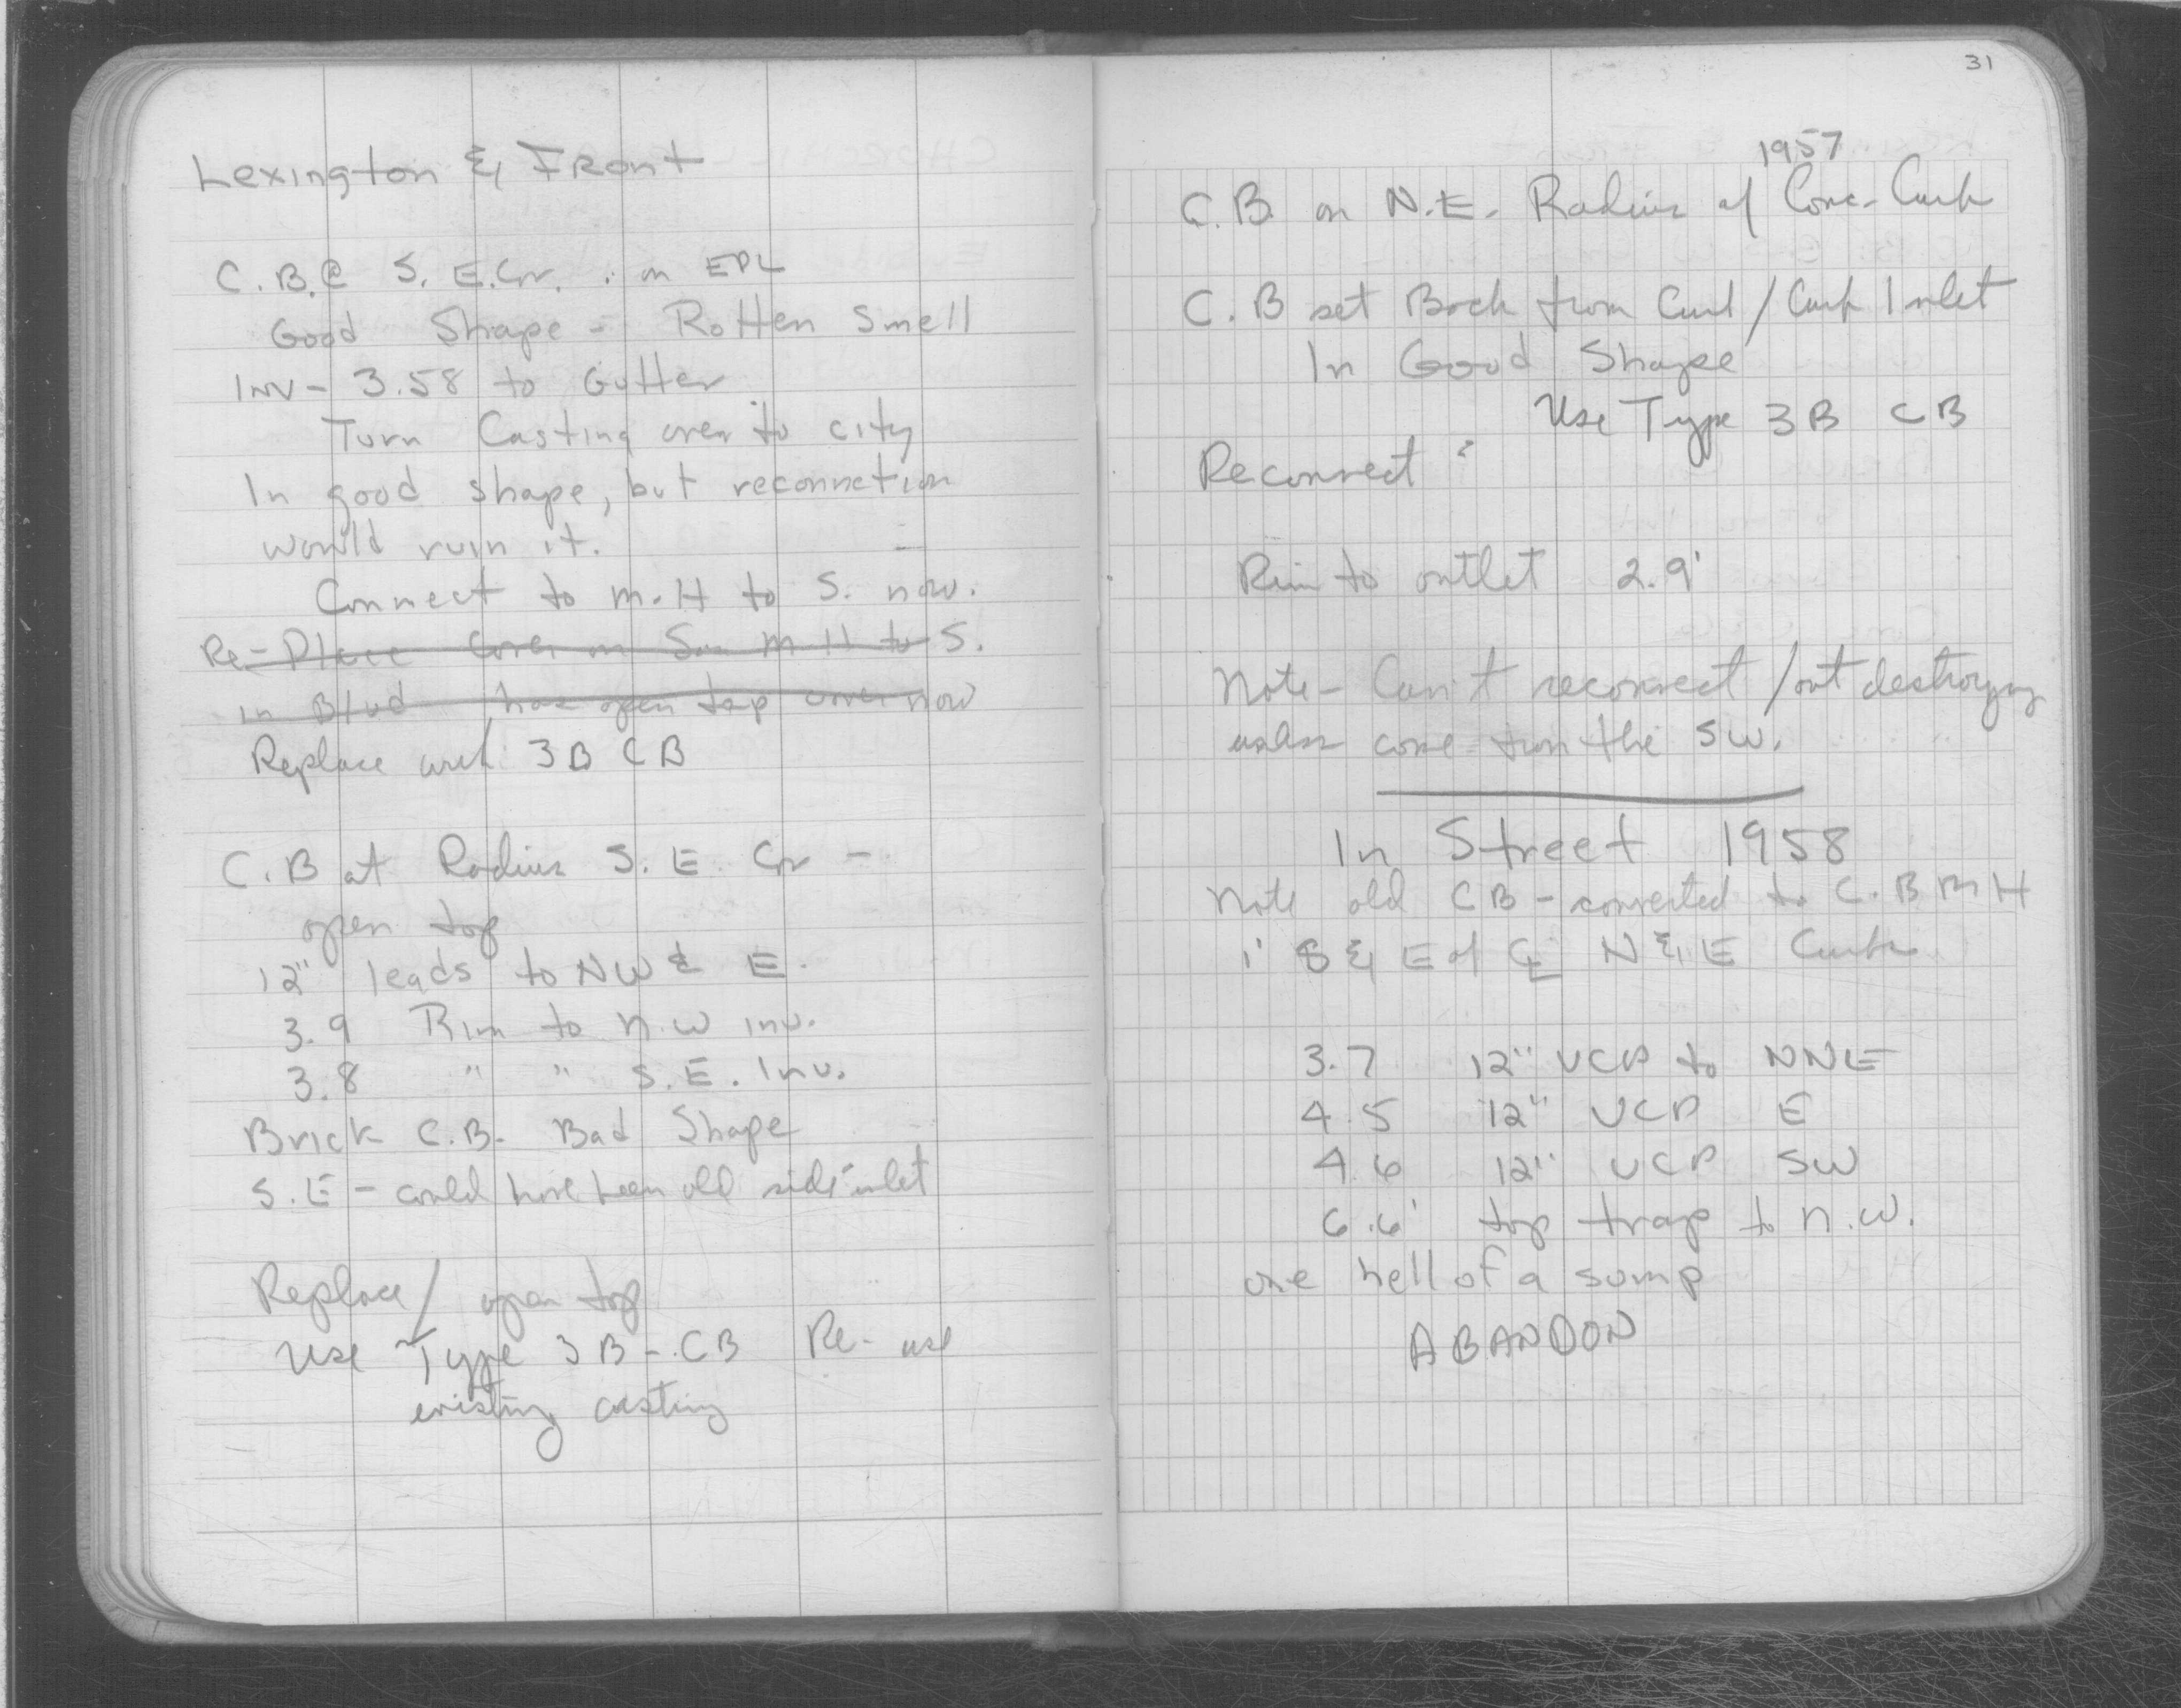 Lexington & Front
C.B.@ S. E. Cor. : on EPL
Good Shape - Rotten Smell
Inv - 3.58 to Gutter
Turn Casting over to city
In good shape, but reconnection
would ruin it.
Connect to M.H to S. now.
Re-Place Cover on San M H to S.
in Blvd has open top cover now
Replace with 3B CB
C.B at Radius S. E. Cor -
open top
12" leads to NW & E.
3.9 Rim to N.W inv.
3.8 " " S.E. Inv.
Brick C.B. Bad Shape
S.E - could have been old side inlet
Replace / open top
Use Type 3B - CB Re-use
existing casting
31
1957
C.B. on N.E. Radius of Conc. Curb
C.B set Back from Curb / Curb Inlet
In Good Shape
Use Type 3B CB
Reconnect
Rim to outlet 2.9'
Note - Can't reconnect /out destroying
unless come from the SW.
In Street 1958
Note old CB - converted to C.B M H
1' S & E of N & E Curb
3.7 12" VCP to NNE
4.5 12" VCP E
4.6 12" VCP SW
6.6' top trap to N.W.
one hell of a sump
ABANDON